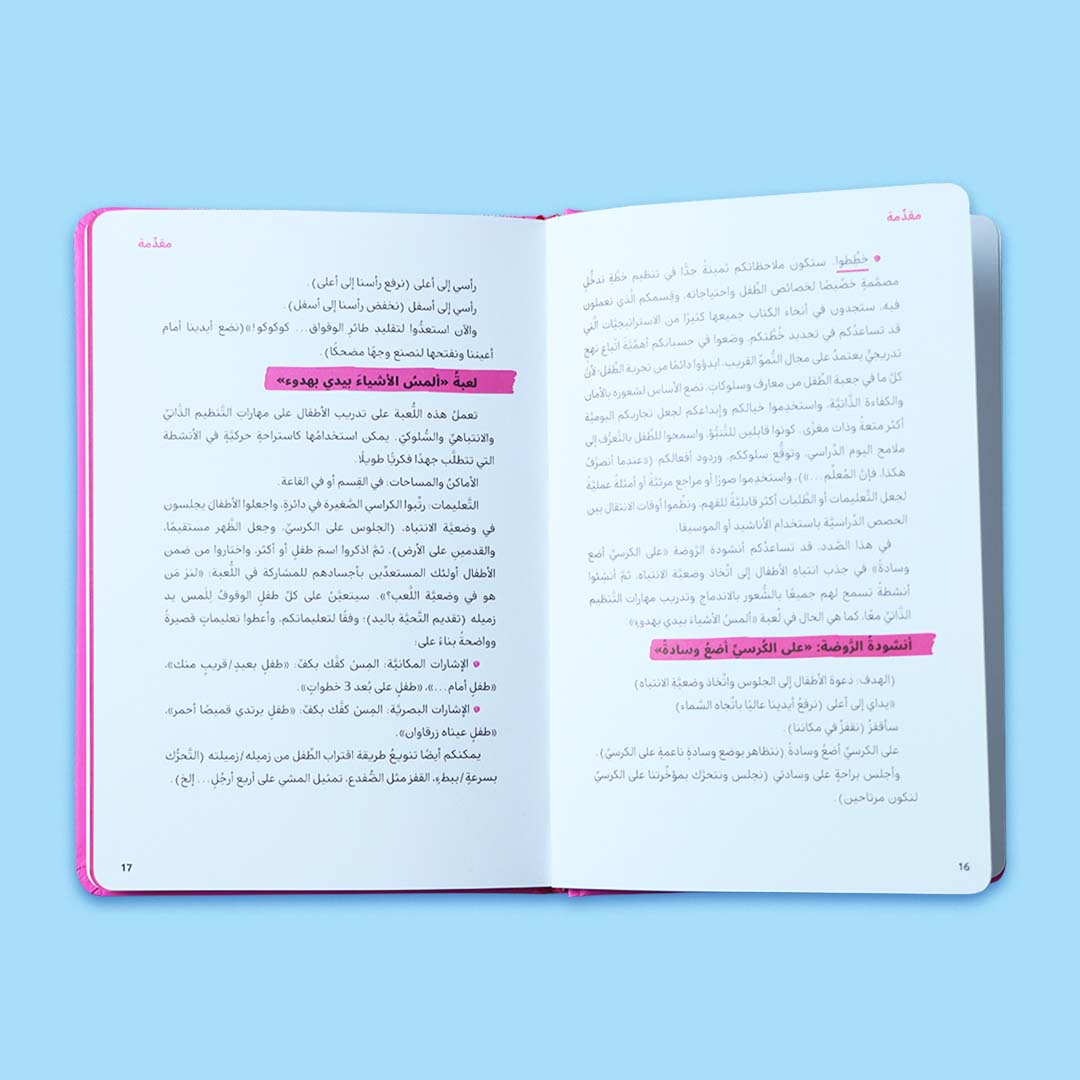 مقدِّمة
• خطِّطوا. ستكون ملاحظاتكم ثمينةً جدًّا في تنظيم خطَّةِ تدخُّلٍ
مصمَّمةٍ خصِّيصًا لخصائص الطِّفل واحتياجاته، وقِسمكم الَّذي تعملون
فيه. ستجدون في أنحاء الكتاب جميعها كثيرًا من الاستراتيجيَّات الَّتي
قد تساعدُكم في تحديد خُطَّتكم، وضَعوا في حسبانكم أهمِّيَّة اتِّباع نهجٍ
تدريجيٍّ يعتمدُ على مجال النُّموِّ القريب. ابدؤوا دائمًا من تجربة الطِّفل؛ لأنَّ
كلَّ ما في جعبة الطِّفل من معارف وسلوكاتٍ، تضع الأساس لشعوره بالأمان
والكفاءة الذَّاتيَّة. واستخدِموا خيالكم وإبداعكم لجعل تجاربكم اليوميَّة
أكثر متعةً وذات مغزًى. كونوا قابلين للتَّنبُّؤ، واسمحوا للطِّفل بالتَّعرُّف إلى
ملامح اليوم الدِّراسي، وتوقُّع سلوككم، وردود أفعالكم («عندما أتصرَّفُ
هكذا، فإنَّ المُعلِّم...»)، واستخدِموا صورًا أو مراجع مرئيَّة أو أمثلةً عمليَّةً
لجعل التَّعليمات أو الطَّلبات أكثر قابليَّةً للفهم، ونظِّموا أوقات الانتقال بين
الحصص الدِّراسيَّة باستخدام الأناشيد أو الموسيقا.
في هذا الصَّدد، قد تساعدُكم أنشودة الرَّوضة «على الكرسيِّ أضع
وسادةً» في جذب انتباه الأطفال إلى اتِّخاذ وضعيَّة الانتباه، ثمَّ أنشِئوا
أنشطةً تسمح لهم جميعًا بالشُّعور بالاندماج وتدريب مهارات التَّنظيم
الذَّاتيِّ معًا، كما هي الحال في لُعبة «ألمسُ الأشياءَ بيدي بهدوءٍ».
أنشودةُ الرَّوضة: «على الكُرسيِّ أضعُ وسادةً»
(الهدف: دعوة الأطفال إلى الجلوس واتِّخاذ وضعيَّةِ الانتباه)
«يداي إلى أعلى (نرفعُ أيدينا عاليًا باتِّجاه السَّماء)
سأقفزُ (نقفزُ في مكاننا).
على الكرسيِّ أضعُ وسادةً (نتظاهر بوضع وسادةٍ ناعمةٍ على الكرسيِّ).
وأجلس براحةٍ على وسادتي (نجلس ونتحرَّك بمؤخِّرتنا على الكرسيِّ
لنكون مرتاحين).
16
مقدِّمة
رأسي إلى أعلى (نرفع رأسنا إلى أعلى).
رأسي إلى أسفل (نخفض رأسنا إلى أسفل).
والآن استعدُّوا لتقليدِ طائرِ الوقواق... كوكوكو!»(نضع أيدينا أمام
أعيننا ونفتحها لنصنع وجهًا مضحكًا).
لعبةُ «ألمسُ الأشياءَ بيدي بهدوء»
تعملُ هذه اللُّعبة على تدريب الأطفال على مهارات التَّنظيم الذَّاتيِّ
والانتباهيِّ والسُّلوكيِّ. يمكن استخدامُها كاستراحةٍ حركيَّةٍ في الأنشطة
التي تتطلَّب جهدًا فكريًّا طويلًا.
الأماكنُ والمساحات: في القِسم أو في القاعة.
التَّعليمات: رتِّبوا الكراسي الصَّغيرة في دائرةٍ، واجعلوا الأطفالَ يجلسون
في وضعيَّة الانتباه، (الجلوس على الكرسيِّ، وجعل الظَّهر مستقيمًا،
والقدمين على الأرض)، ثمَّ اذكروا اسمَ طفلٍ أو أكثر، واختاروا من ضمن
الأطفال أولئك المستعدِّين بأجسادهم للمشاركة في اللُّعبة: «لنرَ مَن
هو في وضعيَّة اللَّعب؟». سيتعيَّنُ على كلِّ طفلٍ الوقوفُ لِلَمس يد
زميله (تقديم التَّحيَّة باليد)؛ وفقًا لتعليماتكم، وأعطوا تعليماتٍ قصيرةً
وواضحةً بناءً على:
• الإشارات المكانيَّة: المِسن كفَّك بكفِّ: «طفلٍ بعيدٍ/قريبٍ منك»،
«طفلٍ أمام...»، «طفلٍ على بُعد 3 خطواتٍ».
• الإشارات البصريَّة: المِسن كفَّك بكفِّ: «طفلٍ يرتدي قميصًا أحمر»،
«طفلٍ عيناه زرقاوان».
يمكنكم أيضًا تنويعُ طريقة اقتراب الطِّفل من زميله/زميلته (التَّحرُّك
بسرعةٍ/ببطءٍ، القفز مثل الضُّفدع، تمثيل المشي على أربع أرجُلٍ... إلخ).
17